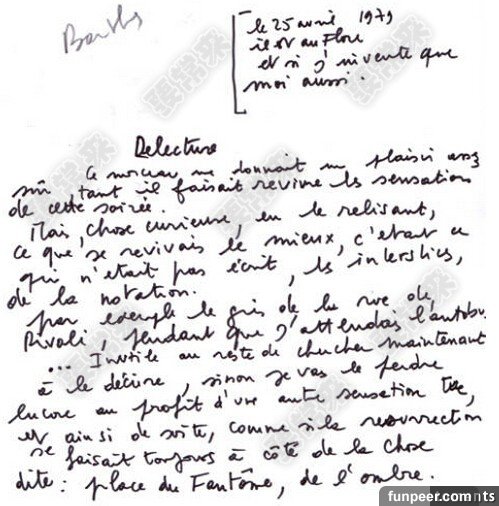 Barthes
le 25 avril 1979
il est au Flore
et si j'invente que
moi aussi.
Relecture
Ce morceau me donnait un plaisir assez
sûr, tant il faisait revivre les sensations
de cette soirée.
Mais, chose curieuse, en le relisant,
ce que je revivais le mieux, c'était ce
qui n'était pas écrit, les interstices,
de la notation.
par exemple le gris de la rue de
Rivoli, pendant que j'attendais l'autobus
... Inutile au reste de chercher maintenant
à le décrire, sinon je vais le perdre
encore au profit d'une autre sensation tue,
et ainsi de suite, comme si la resurrection
se faisait toujours à côté de la chose
dite : place du Fantôme, de l'ombre.
funpeer.comnts